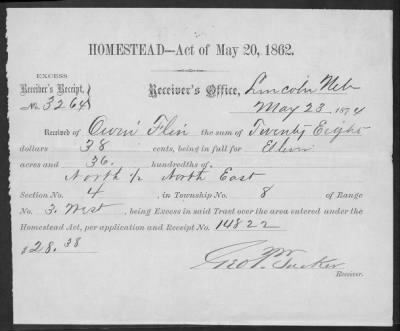 HOMESTEAD—Act of May 20, 1862.
EXCESS
Receiver's Receipt,
No. 3264
Receiver's Office, Lincoln Neb
May 23 1874
Received of Owin Flin the sum of Twenty Eight
dollars 38 cents, being in full for Eleven
acres and 36 hundredths of
North 1/2 North East
Section No. 4, in Township No. 8 of Range
No 3. West, being Excess in said Tract over the area entered under the
Homestead Act, per application and Receipt No. 14822
$28.38
Geo. P. Tucker
Receiver.